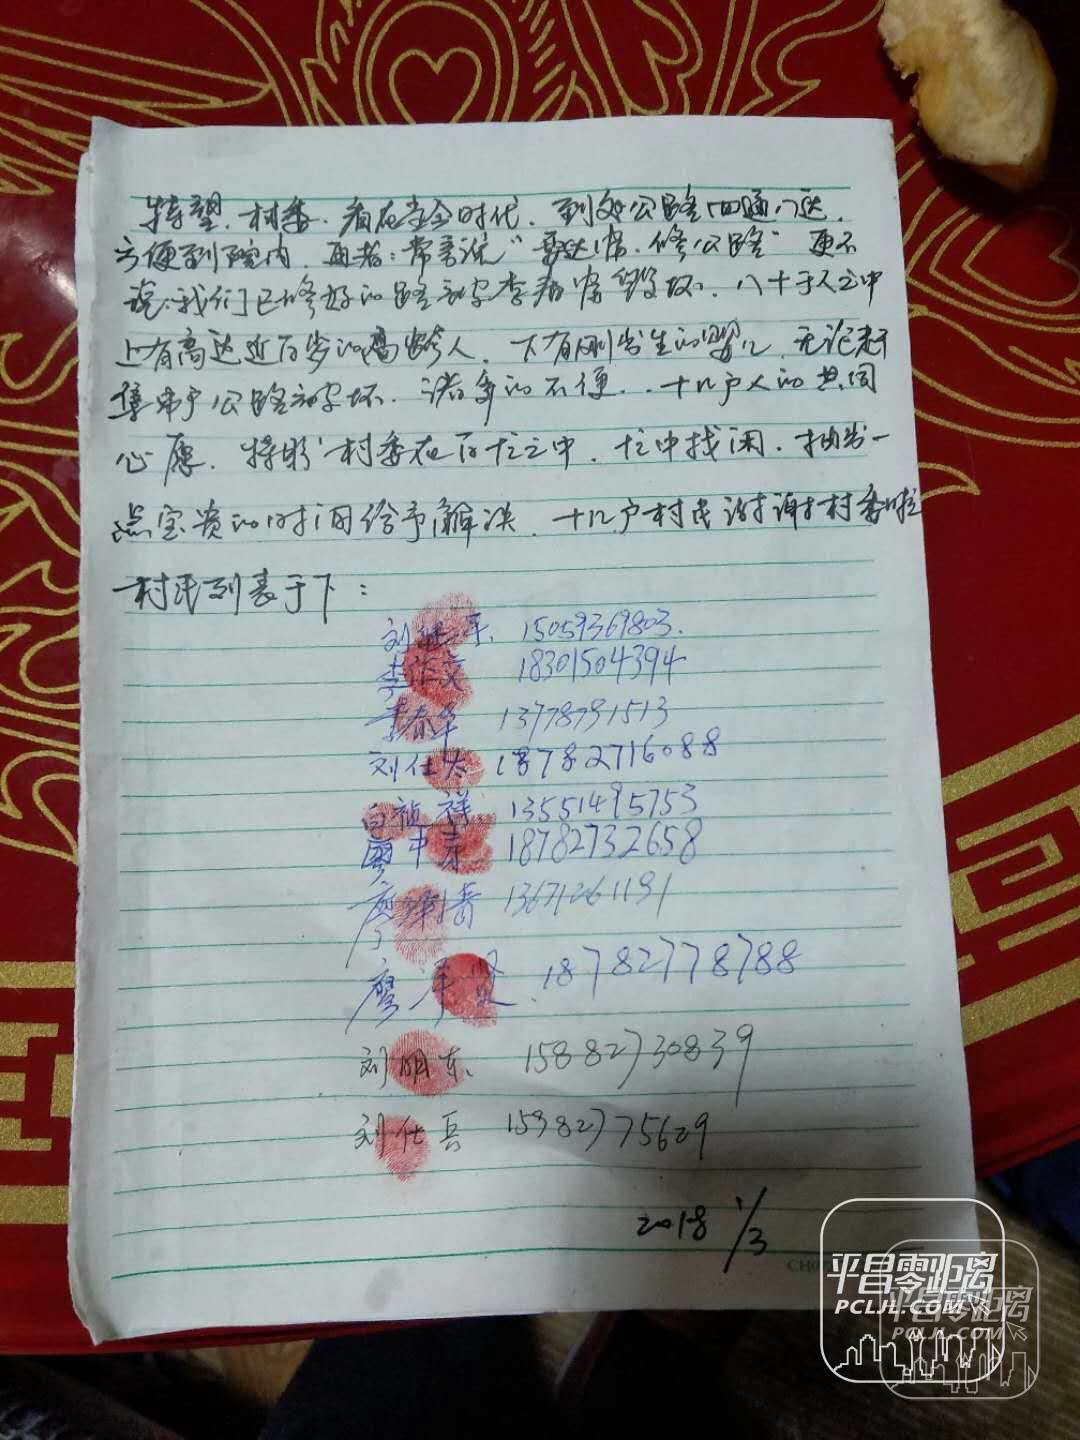 特望.村委.看在当今时代.到处公路四通八达.
方便到院内.再者:常言说"要致富.修公路"更不
说:我们已修好的路 李 毁坏.八十于人之中
上有高达近百岁的高龄人.下有刚出生的婴儿.无论
公路 坏.诸多的不便..十几户人的共同
心愿.特盼村委在百忙之中.忙中找闲.抽出一
点宝贵的时间给予解决.十几户村民谢谢村委啦
村民列表于下:
刘继平.15059369803.
李 18301504394
李春华 13778791513
刘仕 18782716088
白祯祥 13551495753
廖中 18782732658
廖 13671261191
廖 贤.18782778788
刘明东.15882730839
刘仕兵 15982775629
2018 1/3
CH0
平昌零距离
PCLJL.COM
平昌零距离
PCLJL.COM